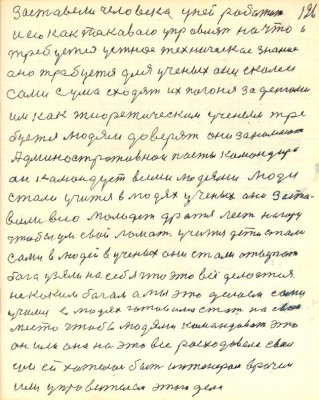 126
заставели человека у ней работат
и его как такаваго управлят на что
требуется ценное техническое знание
оно требуется для ученых они сколем
сами с ума сходят их погоня за детями
им как теоретическим ученым тре
буется людям доверят они занимают
Админостротивнои посты командира
он камандует всеми людями люди
стали учится в людях ученых они заста
вили ево молодеж драть лезт на гору
чтобы ум свой ломат. учится дети стали
сами в людей в ученых они стали
бога узяли на себя что это всё делается
не каким богам а мы это делаем сами
учили в людях готовили стат на свое
место чтобы людями командоват это
он или она на это все расходовала свои
ум ей хотелос быт инженером врачем
или управителем этого дела